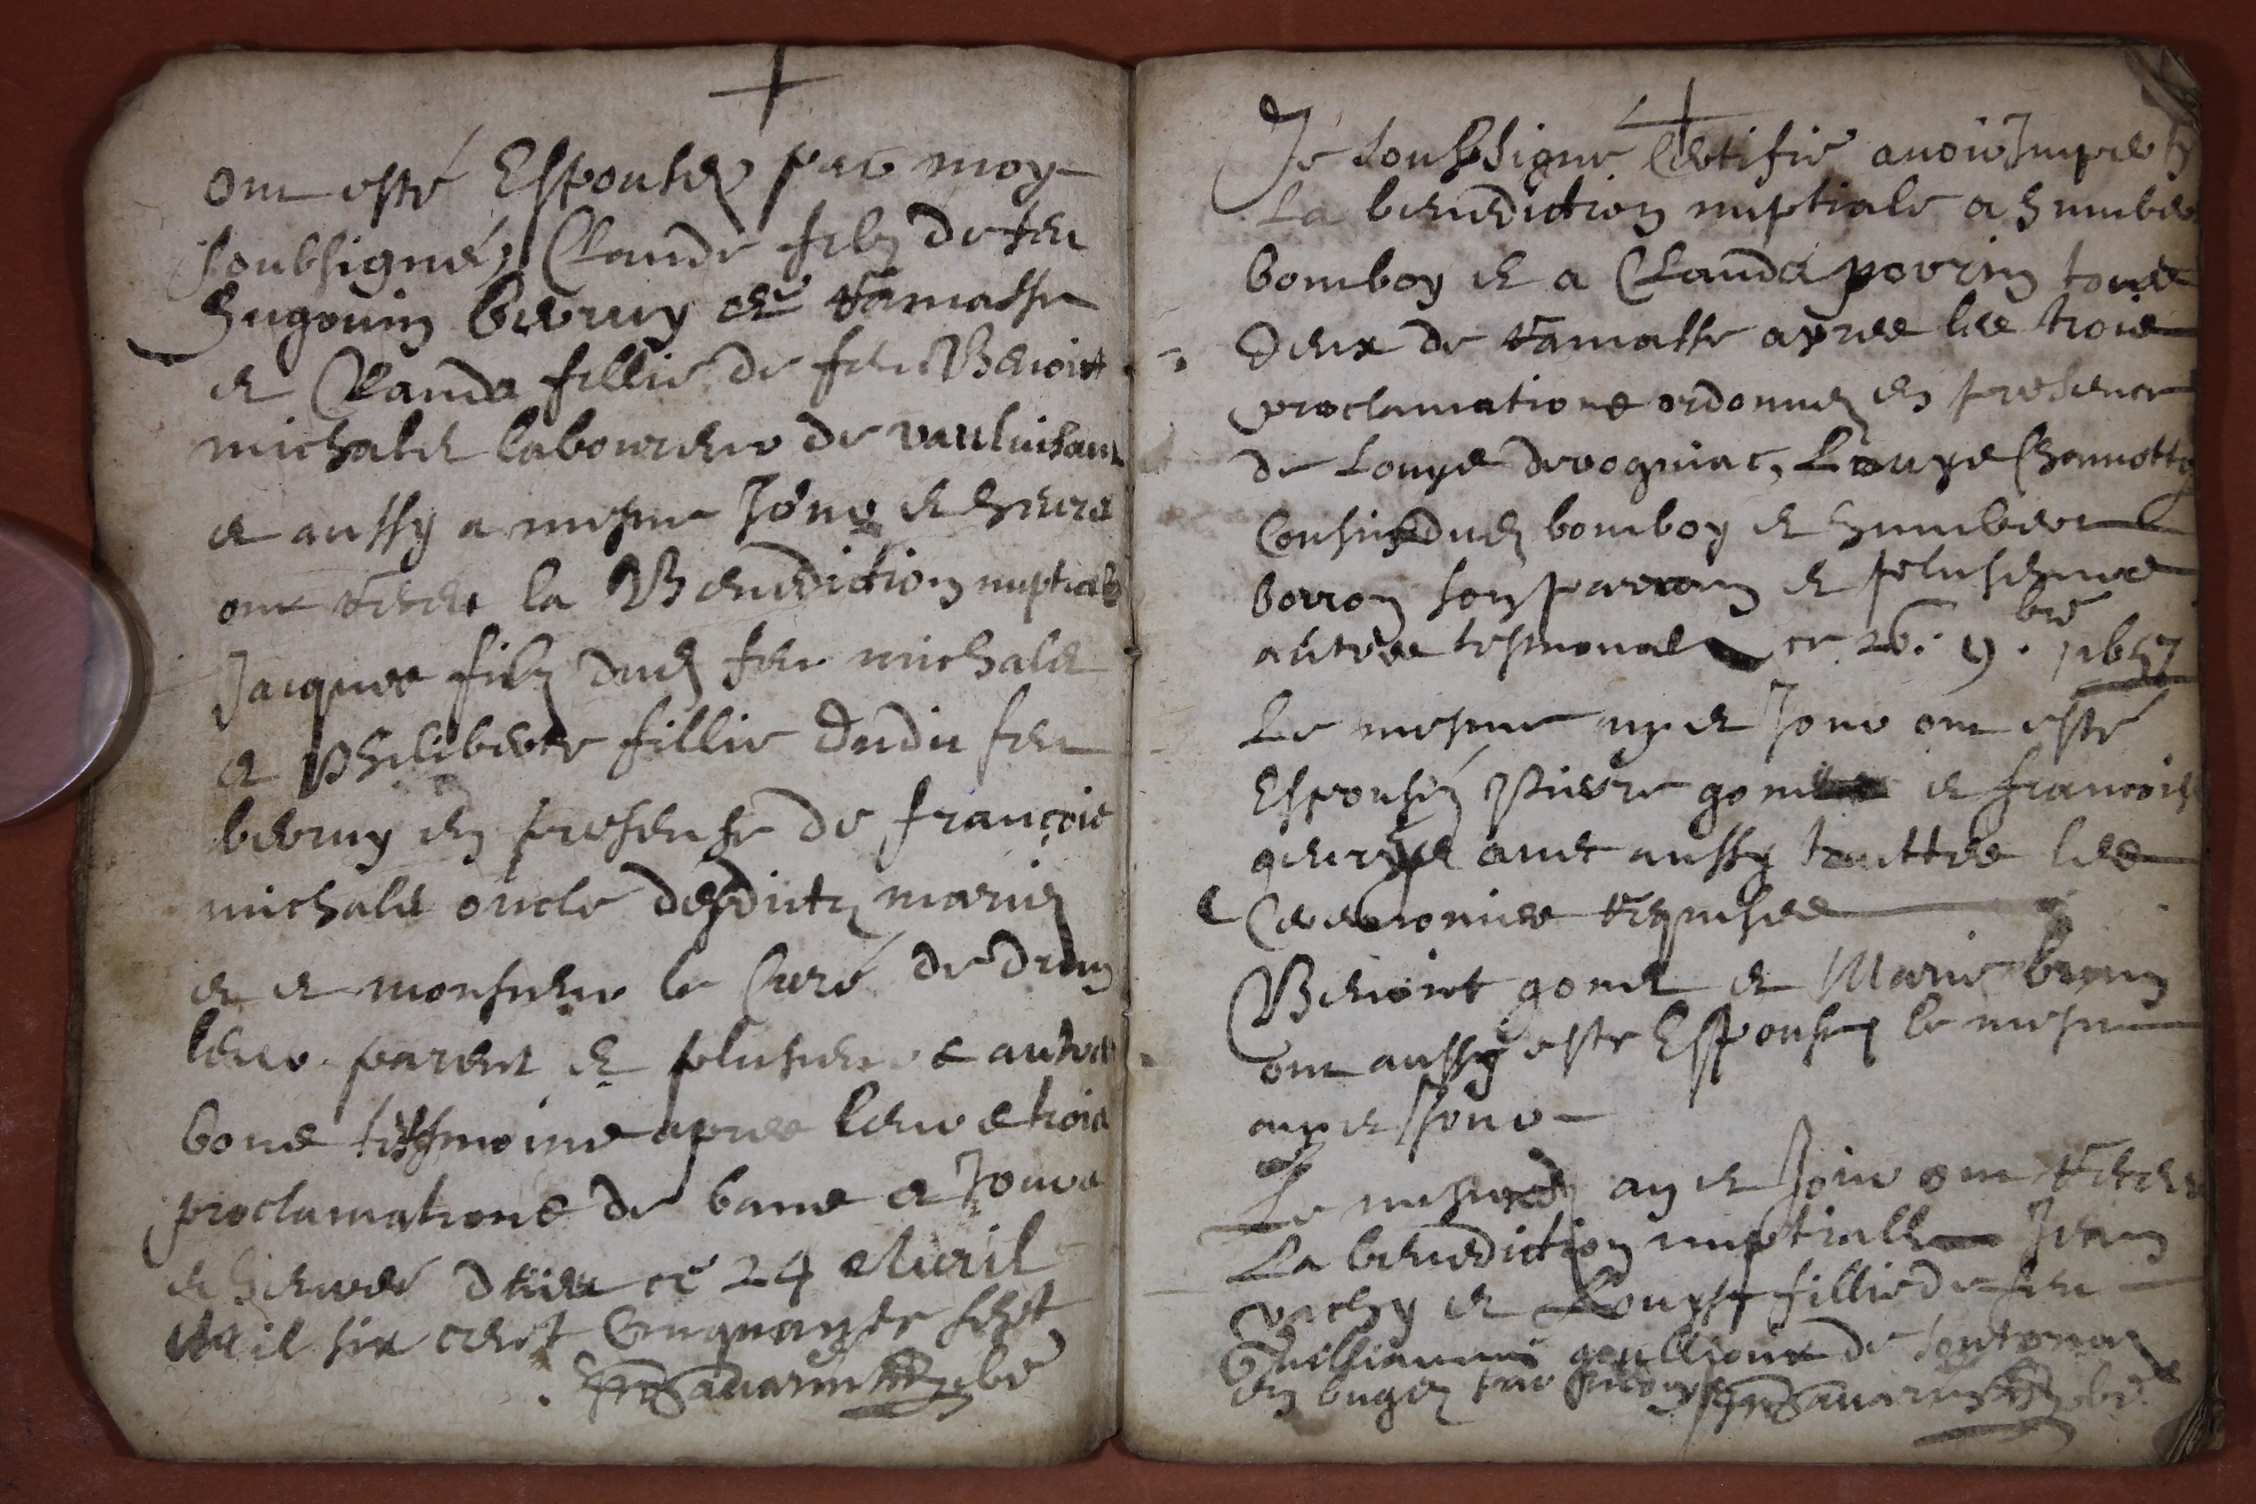 ont esté Espousez par moy
soubsigné, Claude filz de feu
hugonin berruy de ramasse
et Clauda fillie de feu Benoict
michalet laboureur de vauluisant
et aussy a mesme Jour et heure
ont receu la Benediction nuptiale
Jacques filz dud feu michalet
et philiberte fillie dudit feu
berruy en presense de françois
michalet oncle desdictz mariez
et et monsieur le Curé de drom
leur parent et plusieurs autres
bons tesmoins apres leurs trois
proclamations de bans et Jours
et heures ce 24 Auril
Mil six cent Cinquante sept
Savarin
Je soubsigne Certifie auoir Imparty
La benediction nuptiale a humber
bomboy et a Clauda perrin tous
deux de ramasse apres les trois
proclamations ordonnez en presence
de Louys deroguiac, Louys
Cousin dud bomboy et humbert
borron son parrain et plusieurs
autres tesmons ce 26. 9.bre 1657
Le mesme an et Jour ont esté
Espousez Pierre et francoise
auec aussy touttes les
Ceremonies requises
Benoict gonet et Marie brun
ont aussy este Espousez le mesme
an et Jour
Le mesme an et Jour ont receu
La benediction nuptialle Jean
vachy et Louyse fillie de feu
Guilliaume de
en bugez par moy Savarin